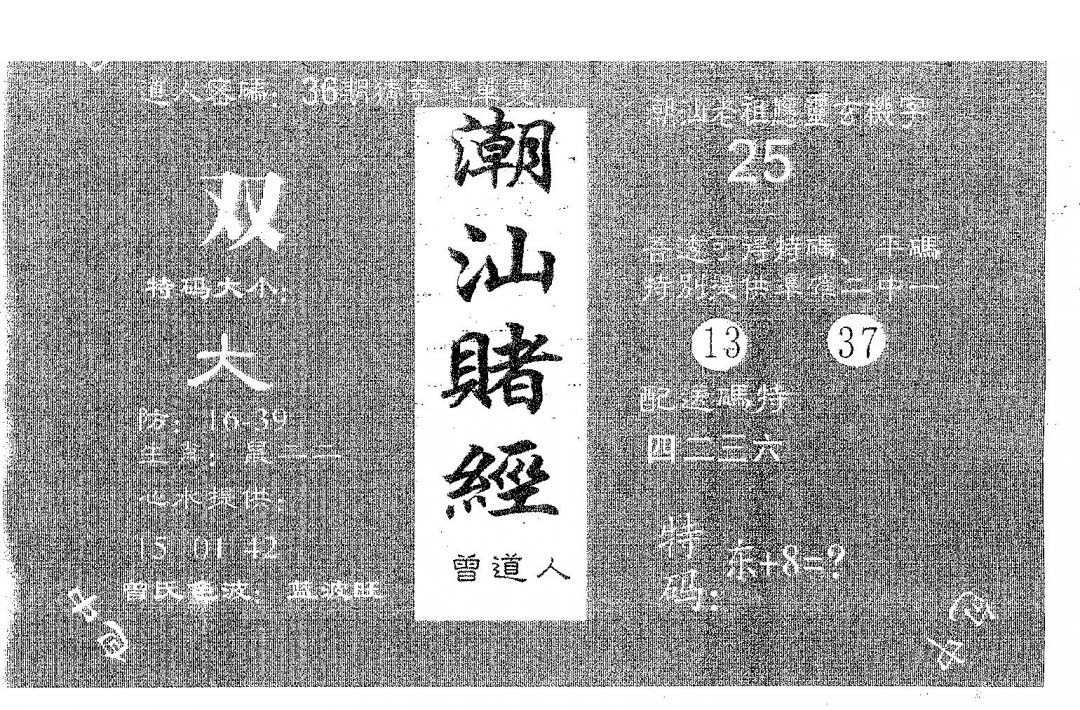 道人密碼：36期猜奇準單雙
双
特码大小：
大
防：16-39
生肖：
心水提供：
15 01 42
曾氏色波：蓝波旺
潮汕賭經
曾道人
潮汕老祖應靈玄機字
25
特碼、平碼
特別提供準確二中一
13 37
配送碼特
四二三六
特码：
+8=?